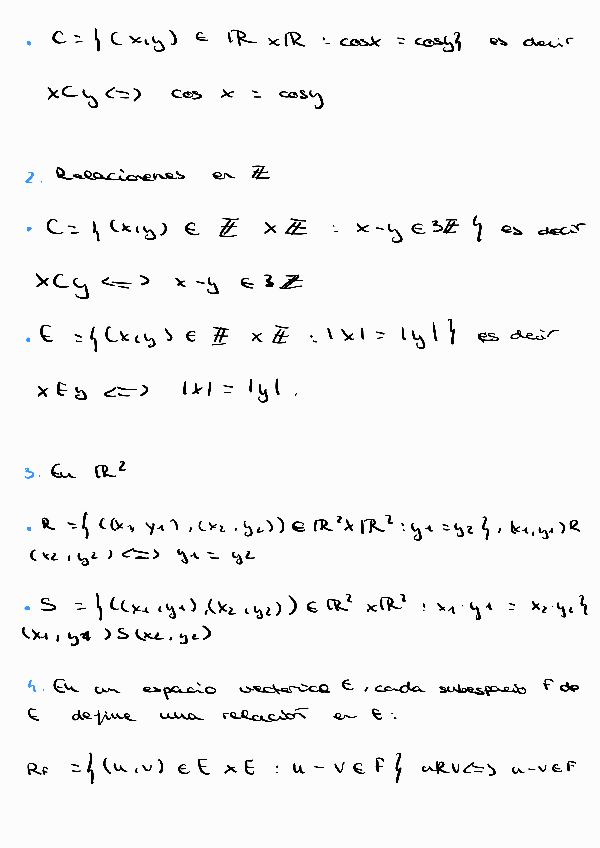 • C = { (x,y) ∈ ℝ xℝ : cosx = cosy} es decir
xCy <=> cos x = cosy
2. Relaciones en ℤ
• C = { (x,y) ∈ ℤ xℤ : x-y ∈ 3ℤ } es decir
xCy <=> x-y ∈ 3ℤ
• E = {(x,y) ∈ ℤ xℤ : |x| = |y|} es decir
xEy <=> |x| = |y|.
3. En ℝ²
• R = { ((x₁, y₁), (x₂, y₂)) ∈ ℝ²xℝ² : y₁ = y₂ }, (x₁,y₁)R
(x₂, y₂) <=> y₁ = y₂
• S = {((x₁,y₁),(x₂,y₂)) ∈ ℝ² xℝ² : x₁·y₁ = x₂·y₂}
(x₁, y₁)S(x₂, y₂)
4. En un espacio vectorial E, cada subespacio F de
E define una relación en E:
R_F = {(u,v) ∈ E x E : u - v ∈ F} uRv<=> u-v∈F